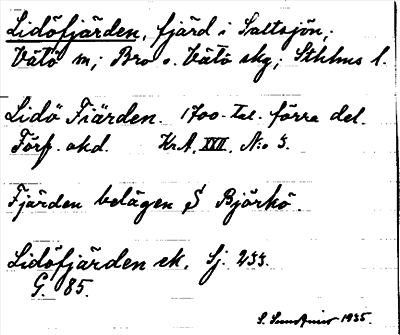 Lidöfjärden, fjärd i Saltsjön;
Vätö sn; Bro o. Vätö skg; Sthlms l.
Lidö Fiärden. 1700-tal. förra del.
Förf. okd. KrA. XVII. N:o 3.
Fjärden belägen S Björkö.
Lidöfjärden ek. Sj. 233.
G. 85.
S. 1935.